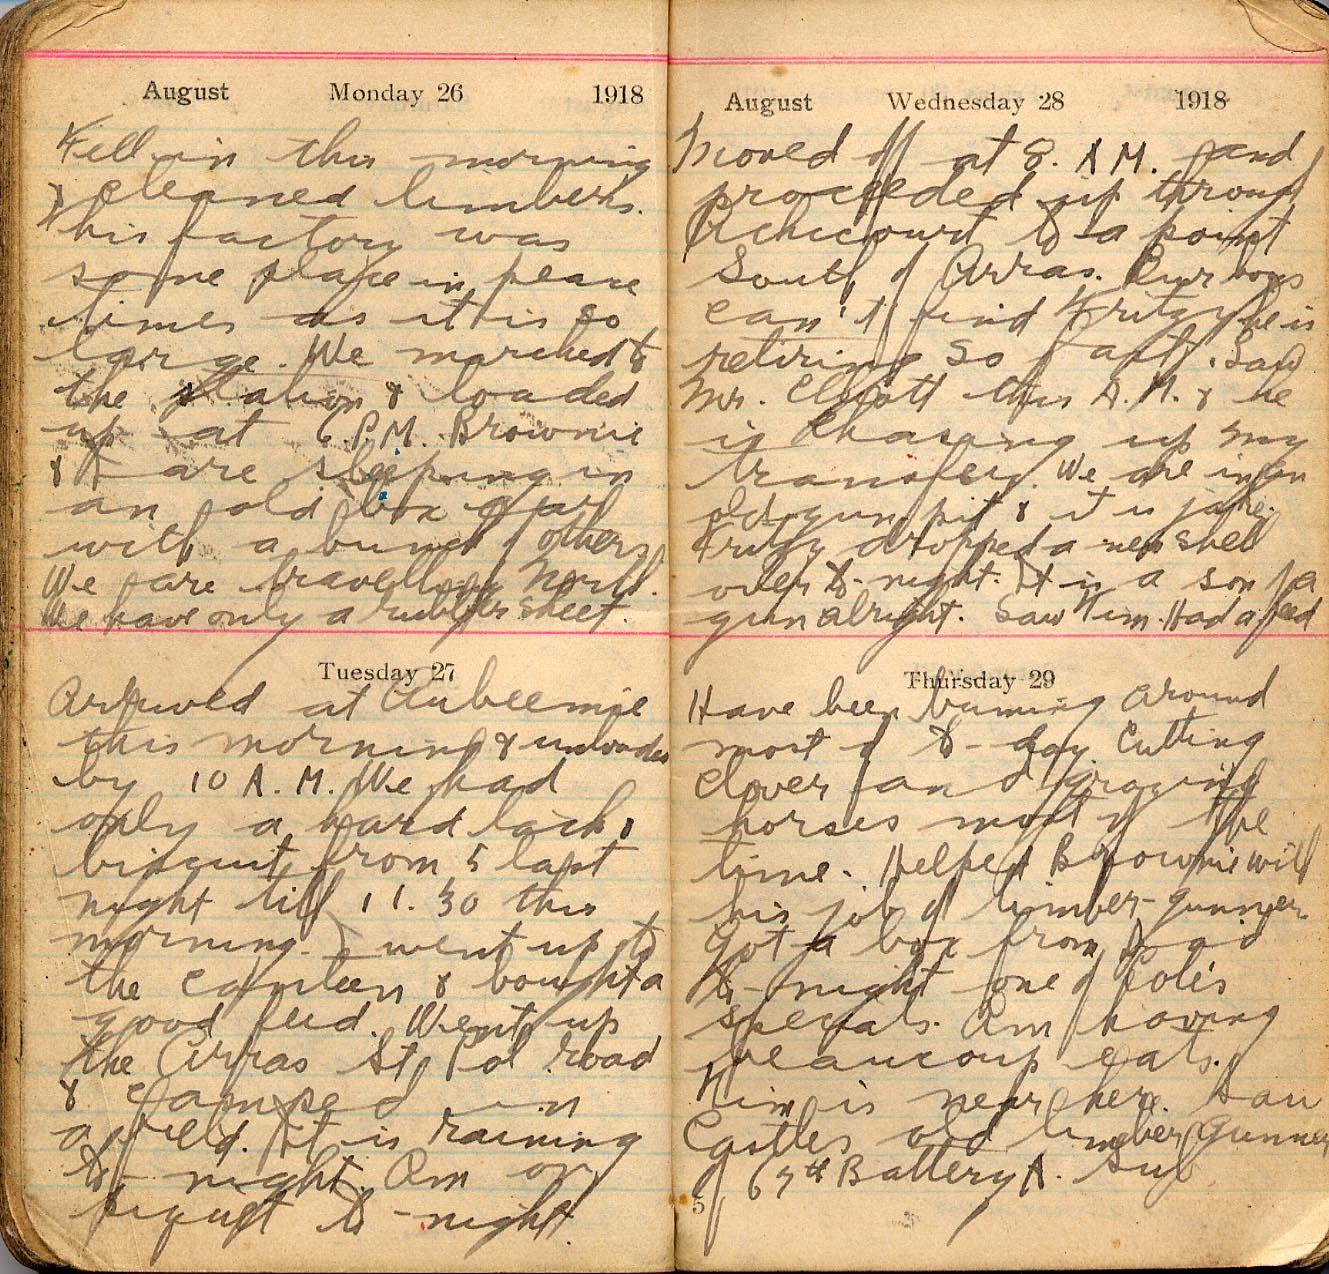 August Monday 26 1918
Fell in this morning
& cleaned limbers.
This factory was
some place in peace
times as it is so
large. We marched to
the station & loaded
up at 6 P.M. Brownie
& I are sleeping in
an old box car
with a bunch of others.
We are travelling North.
We have only a rubber sheet.
Tuesday 27
Arrived at
this morning & unloaded
by 10 A.M. We had
only a hard tack
biscuit from 5 last
night till 11.30 this
morning. I went up to
the canteen & bought a
good feed. Went up
the Arras St Pol road
& camped in
a field. It is raining
to-night. Am on
picquet to-night.
August Wednesday 28 1918
Moved off at 8. A M. and
proceeded up through
Achicourt to a point
South of Arras. Our boys
can't find Fritzy he is
retiring so fast. Saw
Mr. Elliott this A.M. & he
is chasing up my
transfer. We are in an
old gun pit & it is jake.
Fritzy dropped a new shell
over to-night. It is a son of a
gun alright. Saw Him. Had a feed
Thursday 29
Have been bumming around
most of to-day. Cutting
clover and grazing
horses most of the
time. Helped Brownie with
his job of limber-gunner.
Got a box from Dad
to-night one of Cole's
specials. Am having
beaucoup eats.
Him is near here. Saw
Castles old limber gunner
of 67th Battery A. Sub
5